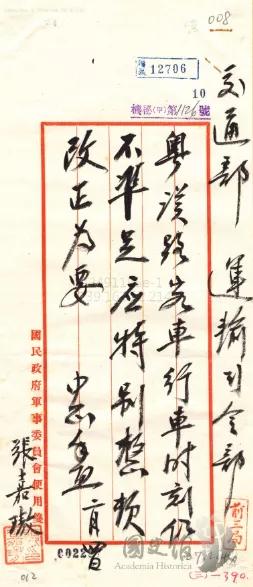 008
12706
10
機秘(甲)第1126號
交通部 運輸司令部
粵漢路客車行車時刻仍
不準足應特別整頓
改正為要 中正手啟
國民政府軍事委員會便用箋
張嘉璈
前三局
0022
012
-390
國史館
Academia Historica